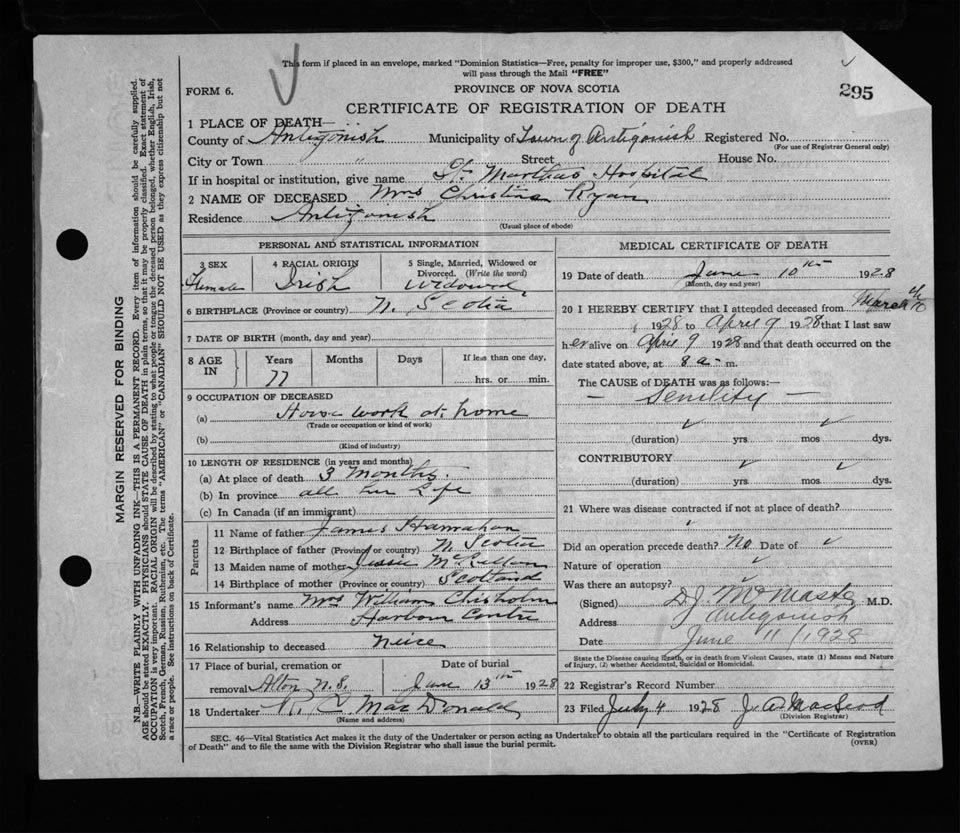 This form if placed in an envelope, marked "Dominion Statistics—Free, penalty for improper use, $300," and properly addressed
will pass through the Mail "FREE"
FORM 6.
PROVINCE OF NOVA SCOTIA
295
CERTIFICATE OF REGISTRATION OF DEATH
1 PLACE OF DEATH—
County of Antigonish Municipality of Town of Antigonish Registered No.
(For use of Registrar General only)
City or Town " Street House No.
If in hospital or institution, give name St. Marthas Hospital
2 NAME OF DECEASED Mrs Christina Ryan
Residence Antigonish
(Usual place of abode)
PERSONAL AND STATISTICAL INFORMATION
3 SEX 4 RACIAL ORIGIN 5 Single, Married, Widowed or
Divorced. (Write the word)
Female Irish Widowed
6 BIRTHPLACE (Province or country) N. Scotia
7 DATE OF BIRTH (month, day and year)
8 AGE IN Years Months Days If less than one day,
77 hrs. or min.
9 OCCUPATION OF DECEASED
(a) House work at home
(Trade or occupation or kind of work)
(b)
(Kind of industry)
10 LENGTH OF RESIDENCE (in years and months)
(a) At place of death 3 Months
(b) In province all her Life
(c) In Canada (if an immigrant)
Parents
11 Name of father James Hanrahan
12 Birthplace of father (Province or country) N. Scotia
13 Maiden name of mother Jessie
14 Birthplace of mother (Province or country) Scotland
15 Informant's name Mrs William Chisholm
Address Harbour Centre
16 Relationship to deceased neice
17 Place of burial, cremation or Date of burial
removal Alton N.S. June 13th 1928
18 Undertaker MacDonald
(Name and address)
MEDICAL CERTIFICATE OF DEATH
19 Date of death June 10th 1928
(Month, day and year)
20 I HEREBY CERTIFY that I attended deceased from March
1928 to April 9 1928 that I last saw
her alive on April 9 1928 and that death occurred on the
date stated above, at 8 a. m.
The CAUSE of DEATH was as follows:—
— Senility —
(duration) yrs mos dys.
CONTRIBUTORY
(duration) yrs mos dys.
21 Where was disease contracted if not at place of death?
Did an operation precede death? No Date of
Nature of operation
Was there an autopsy?
(Signed) M.D.
Address Antigonish
Date June 11/1928
State the Disease causing Death, or in death from Violent Causes, state (1) Means and Nature
of Injury, (2) whether Accidental, Suicidal or Homicidal.
22 Registrar's Record Number
23 Filed July 4 1928 J. A. MacLeod
(Division Registrar)
SEC. 46—Vital Statistics Act makes it the duty of the Undertaker or person acting as Undertaker to obtain all the particulars required in the "Certificate of Registration
of Death" and to file the same with the Division Registrar who shall issue the burial permit. (OVER)
MARGIN RESERVED FOR BINDING
N.B—WRITE PLAINLY WITH UNFADING INK—THIS IS A PERMANENT RECORD. Every item of information should be carefully supplied.
AGE should be stated EXACTLY. PHYSICIANS should STATE CAUSE OF DEATH in plain terms, so that it may be properly classified. Exact statement of
OCCUPATION is very important. RACIAL ORIGIN will be described by stating to what people or tongue the deceased person belonged, whether English, Irish,
Scotch, French, German, Russian, Ruthenian, etc. The terms "AMERICAN" or "CANADIAN" SHOULD NOT BE USED as they express citizenship but not
a race or people. See instructions on back of Certificate.